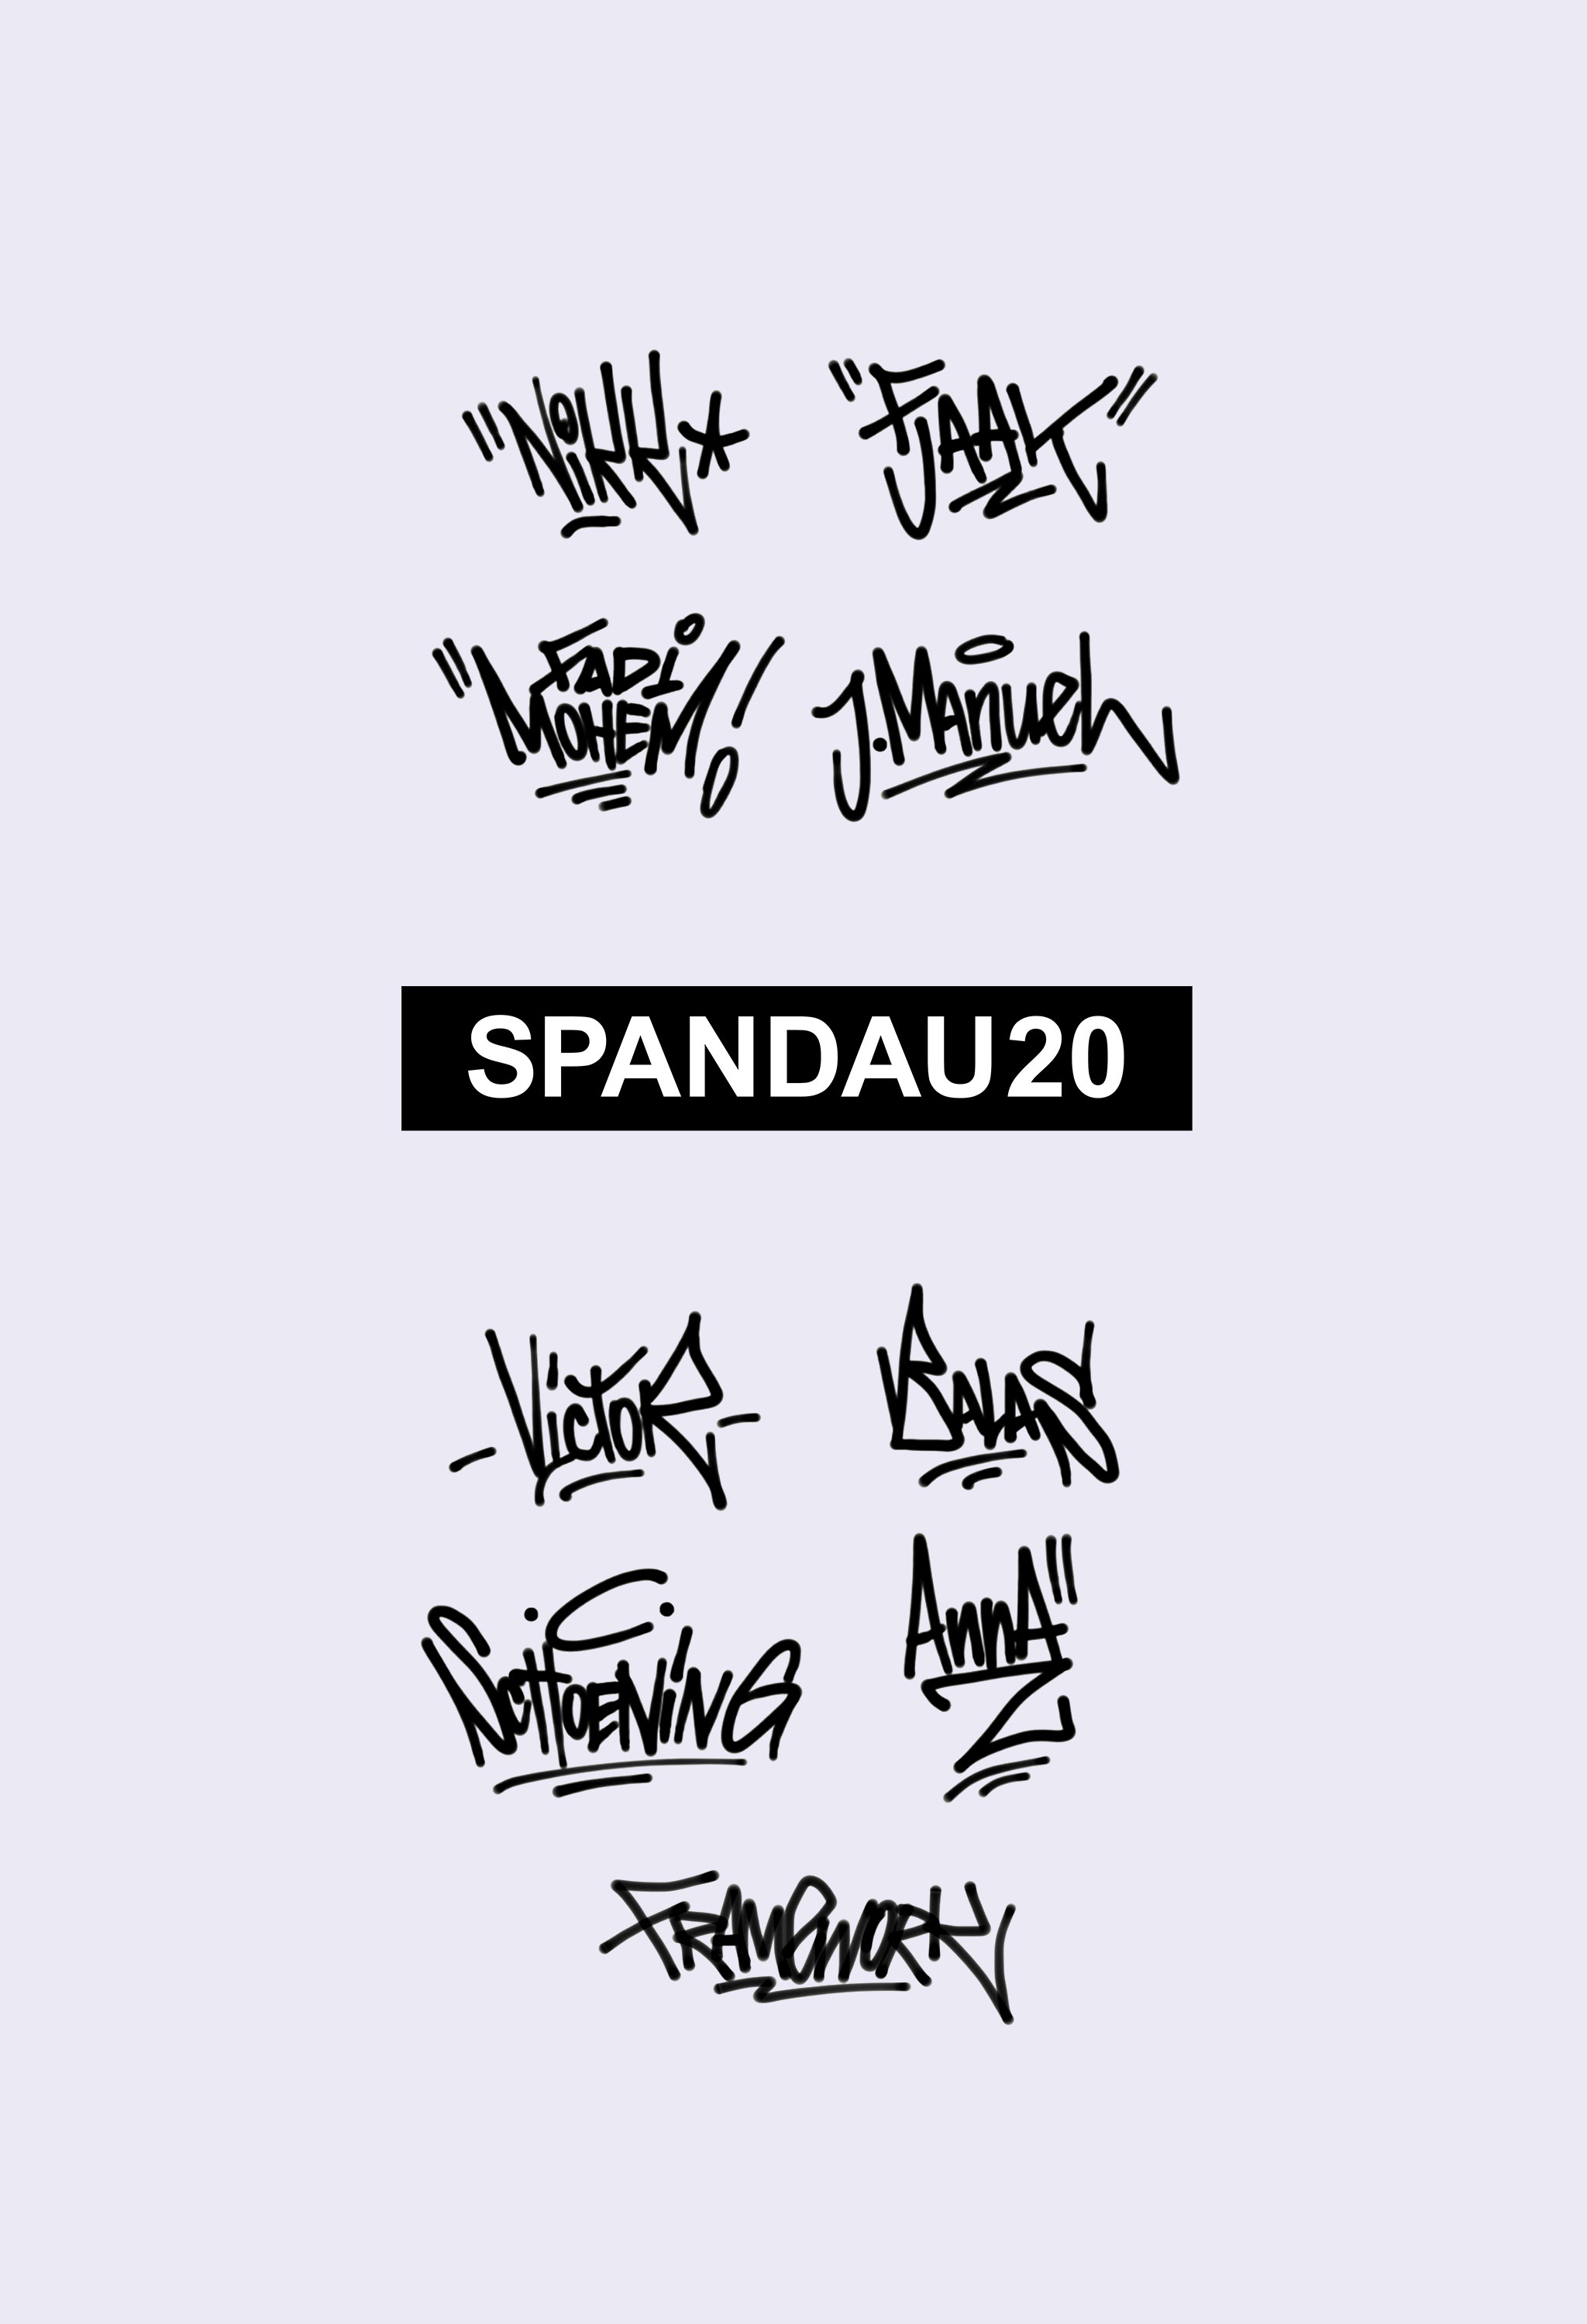 "NiKK*
"FJAAK"
"FADi
MOHEM
J.MAnuel
SPANDAU20
-VictoR-
BALAS
ScHOENiNG
AnnA"
Z
FRAMEWORK